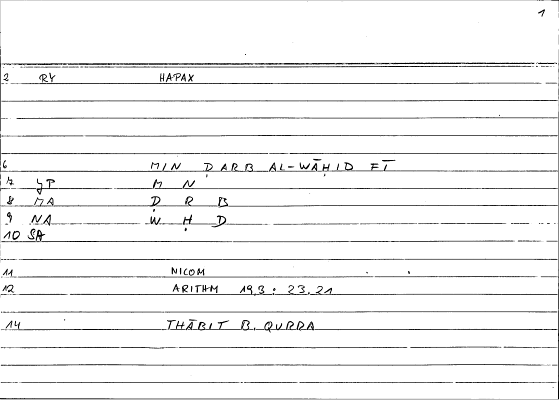 1
2 RY HAPAX
6 MIN ḌARB AL-WĀḤID FĪ
7 JP M N
8 MA Ḍ R B
9 NA W Ḥ D
10 SA
11 NICOM
12 ARITHM 19,3 : 23.21
14 THĀBIT B. QURRA